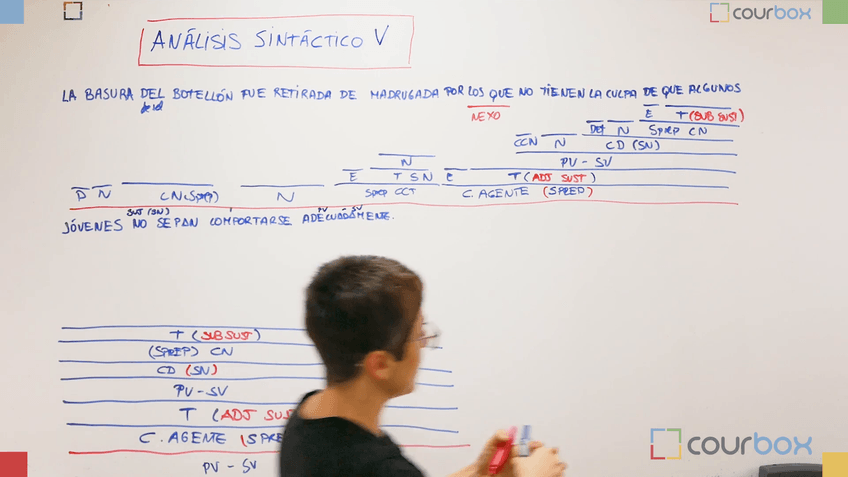 courbox
ANÁLISIS SINTÁCTICO V
LA BASURA DEL BOTELLÓN FUE RETIRADA DE MADRUGADA POR LOS QUE NO TIENEN LA CULPA DE QUE ALGUNOS
de el
NEXO
E T (SUB SUST)
DET N SPREP CN
CCN N CD (SN)
N PV - SV
E T SN E T (ADJ SUST)
D N CN (SPREP) N SPREP CCT C. AGENTE (SPREP)
SUJ (SN) PV - SV
JÓVENES NO SEPAN COMPORTARSE ADECUADAMENTE.
T (SUB SUST)
(SPREP) CN
CD (SN)
PV - SV
T (ADJ SUST
C. AGENTE (SPRE
PV - SV
courbox